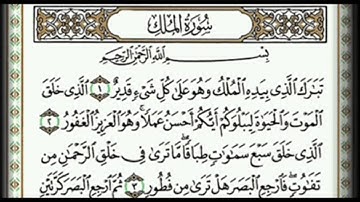 سُورَةُ المُلْكِ
بِسْمِ اللَّهِ الرَّحْمَٰنِ الرَّحِيمِ
تَبَٰرَكَ ٱلَّذِى بِيَدِهِ ٱلْمُلْكُ وَهُوَ عَلَىٰ كُلِّ شَىْءٍ قَدِيرٌ ١ ٱلَّذِى خَلَقَ
ٱلْمَوْتَ وَٱلْحَيَوٰةَ لِيَبْلُوَكُمْ أَيُّكُمْ أَحْسَنُ عَمَلًا ۚ وَهُوَ ٱلْعَزِيزُ ٱلْغَفُورُ ٢
ٱلَّذِى خَلَقَ سَبْعَ سَمَٰوَٰتٍ طِبَاقًا ۖ مَّا تَرَىٰ فِى خَلْقِ ٱلرَّحْمَٰنِ مِن
تَفَٰوُتٍ ۖ فَٱرْجِعِ ٱلْبَصَرَ هَلْ تَرَىٰ مِن فُطُورٍ ٣ ثُمَّ ٱرْجِعِ ٱلْبَصَرَ كَرَّتَيْنِ